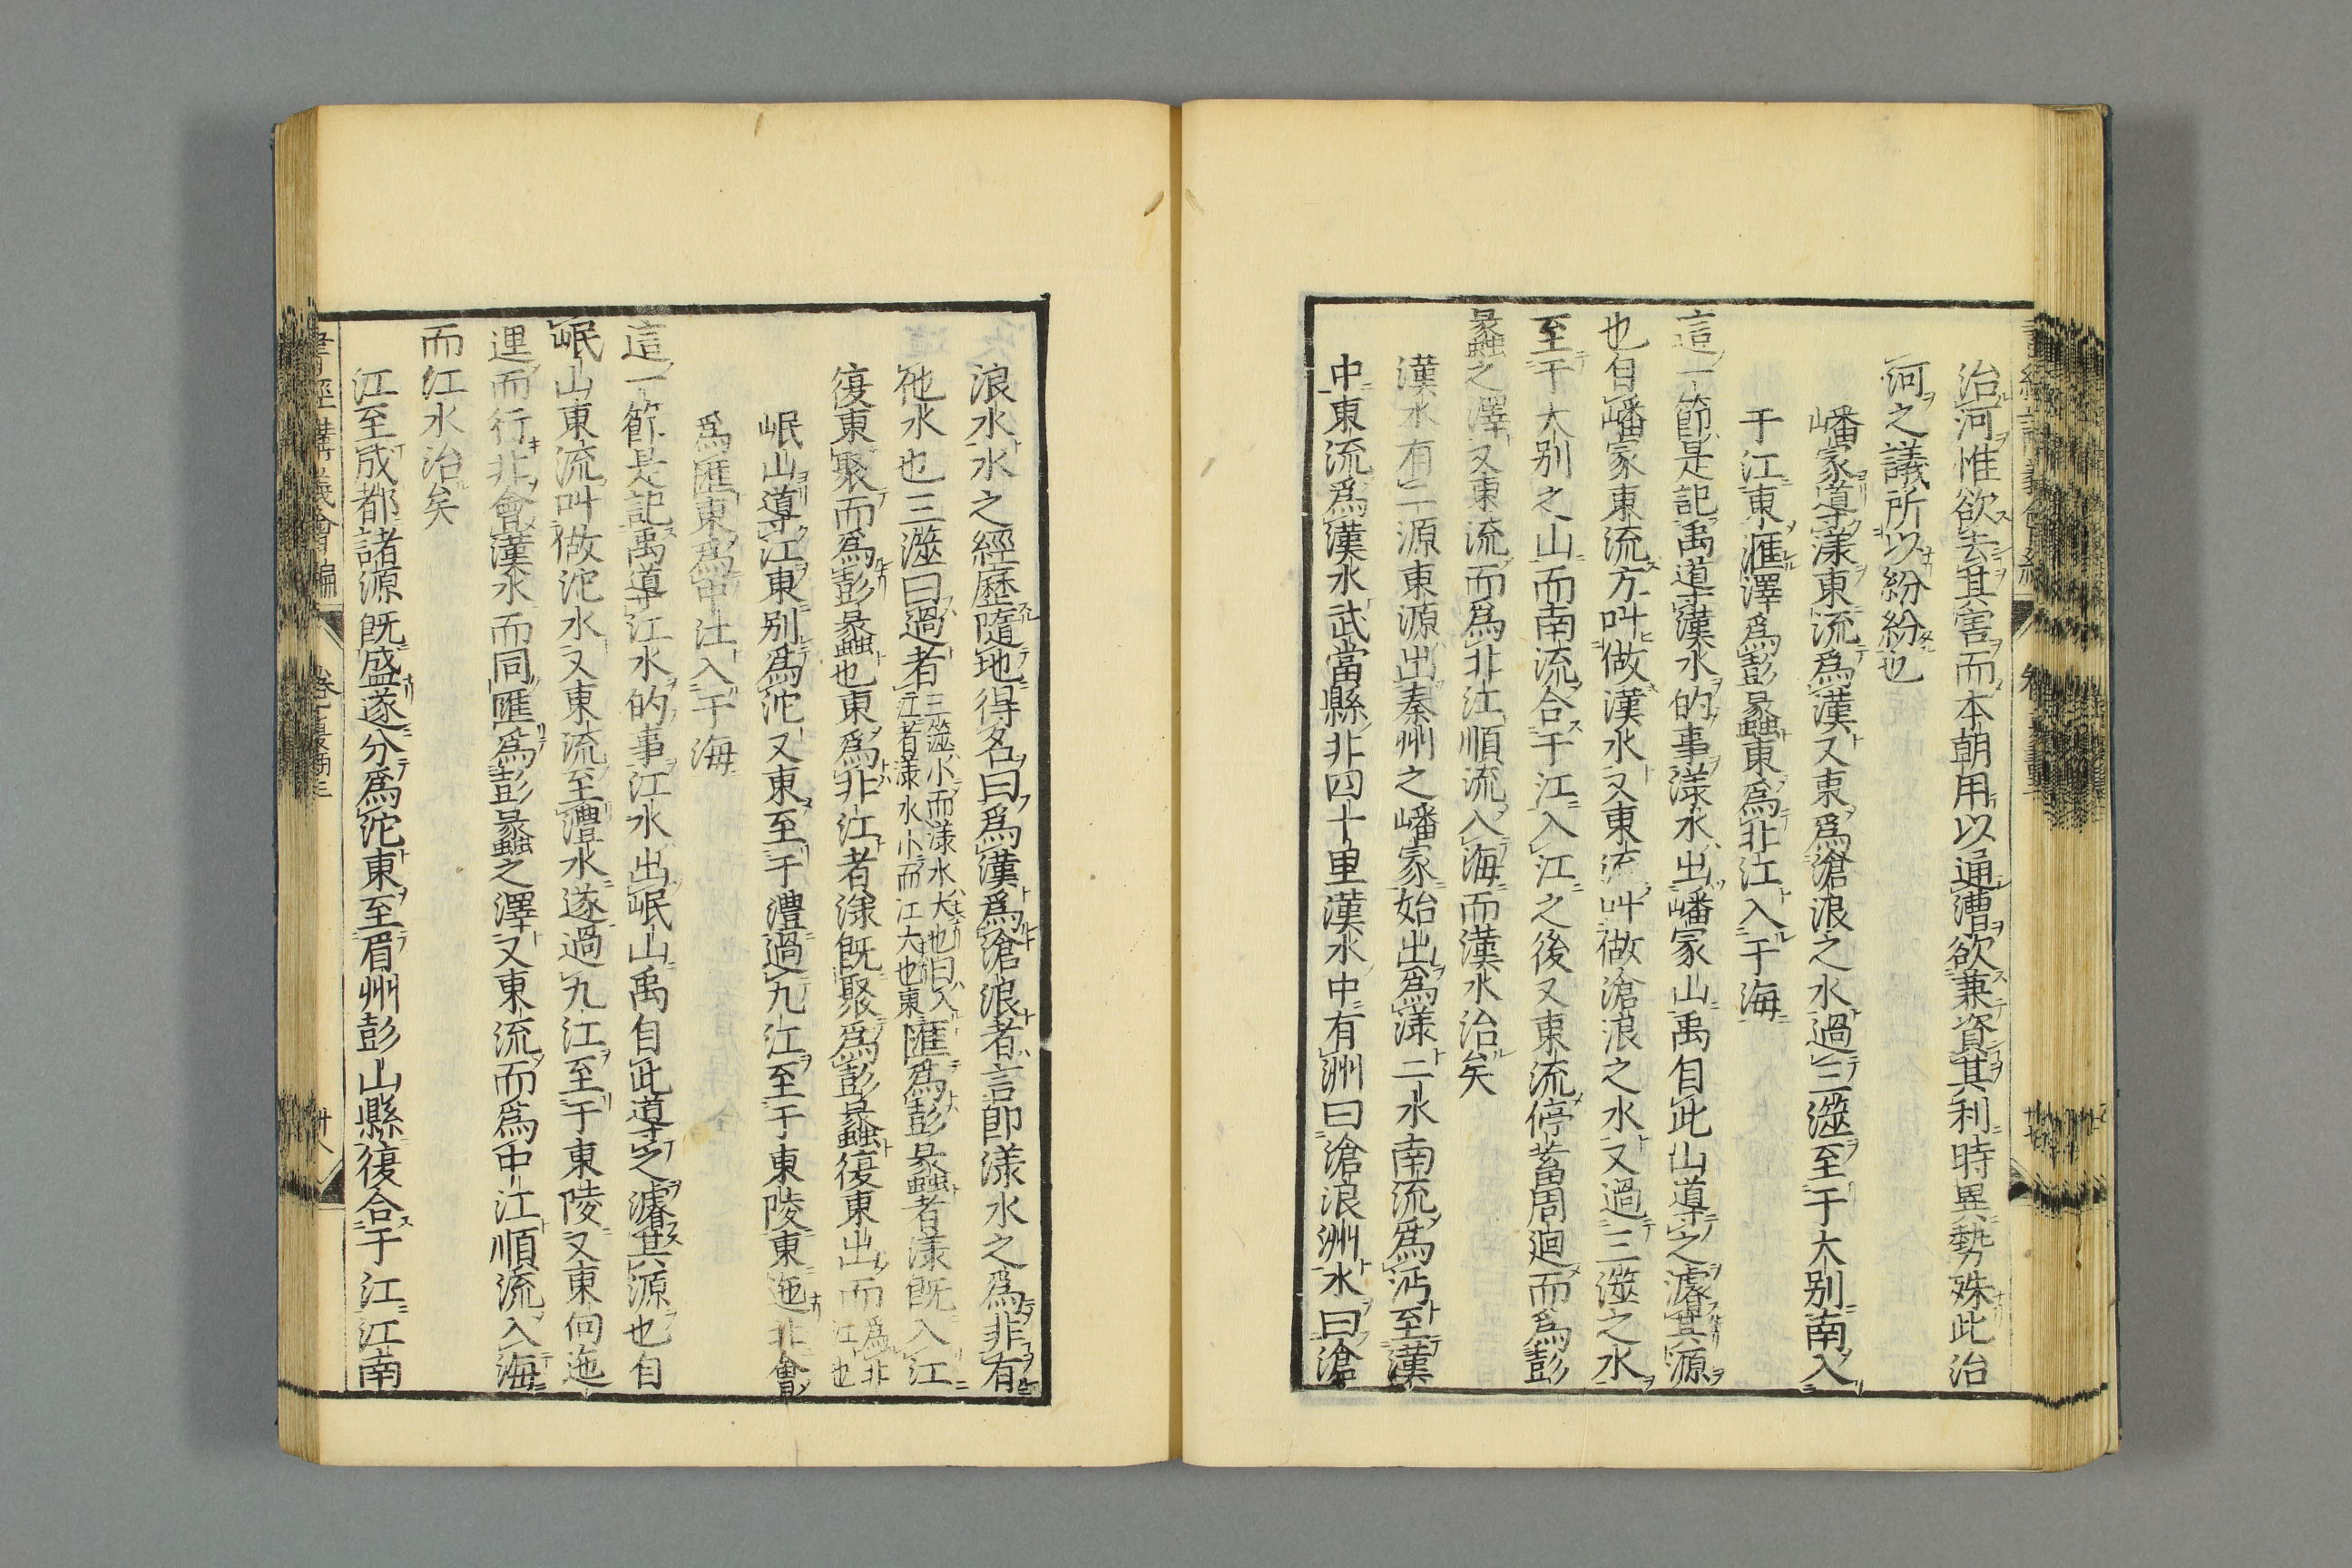 治河惟欲去其害而本朝用以通漕欲兼資其利時異勢殊此治
河之議所以紛紛也
嶓冢導漾東流爲漢又東爲滄浪之水過三澨至于大别南入
于江東滙澤爲彭蠡東爲北江入于海
這一節是記禹導漢水的事漾水出嶓冢山禹自此山導之濬其源
也自嶓冢東流方叫做漢水又東流叫做滄浪之水又過三澨之水
至于大别之山而南流合于江入江之後又東流停蓄周廻而爲彭
蠡之澤又東流而爲北江順流入海而漢水治矣
漢水有二源東源出秦州之嶓冢始出爲漾二水南流爲沔至漢
中東流爲漢水武當縣北四十里漢水中有洲曰滄浪洲水曰滄
浪水水之經歷隨地得名曰爲漢爲滄浪者言卽漾水之爲非有
他水也三澨曰過者三澨小而漾水大也曰入
江者漾水小而江大也東匯爲彭蠡者漾既入江
復東聚而爲彭蠡也東爲北江者漾既聚爲彭蠡復東出而爲北
江也
岷山導江東别爲沱又東至于澧過九江至于東陵東迤北會
爲匯東爲中江入于海
這一節是記禹導江水的事江水出岷山禹自此導之濬其源也自
岷山東流叫做沱水又東流至澧水遂過九江至于東陵又東向迤
逕而行北會漢水而同匯爲彭蠡之澤又東流而爲中江順流入海
而江水治矣
江至成都諸源既盛遂分爲沱東至眉州彭山縣復合于江江南
書經講義會編
卷
廿八